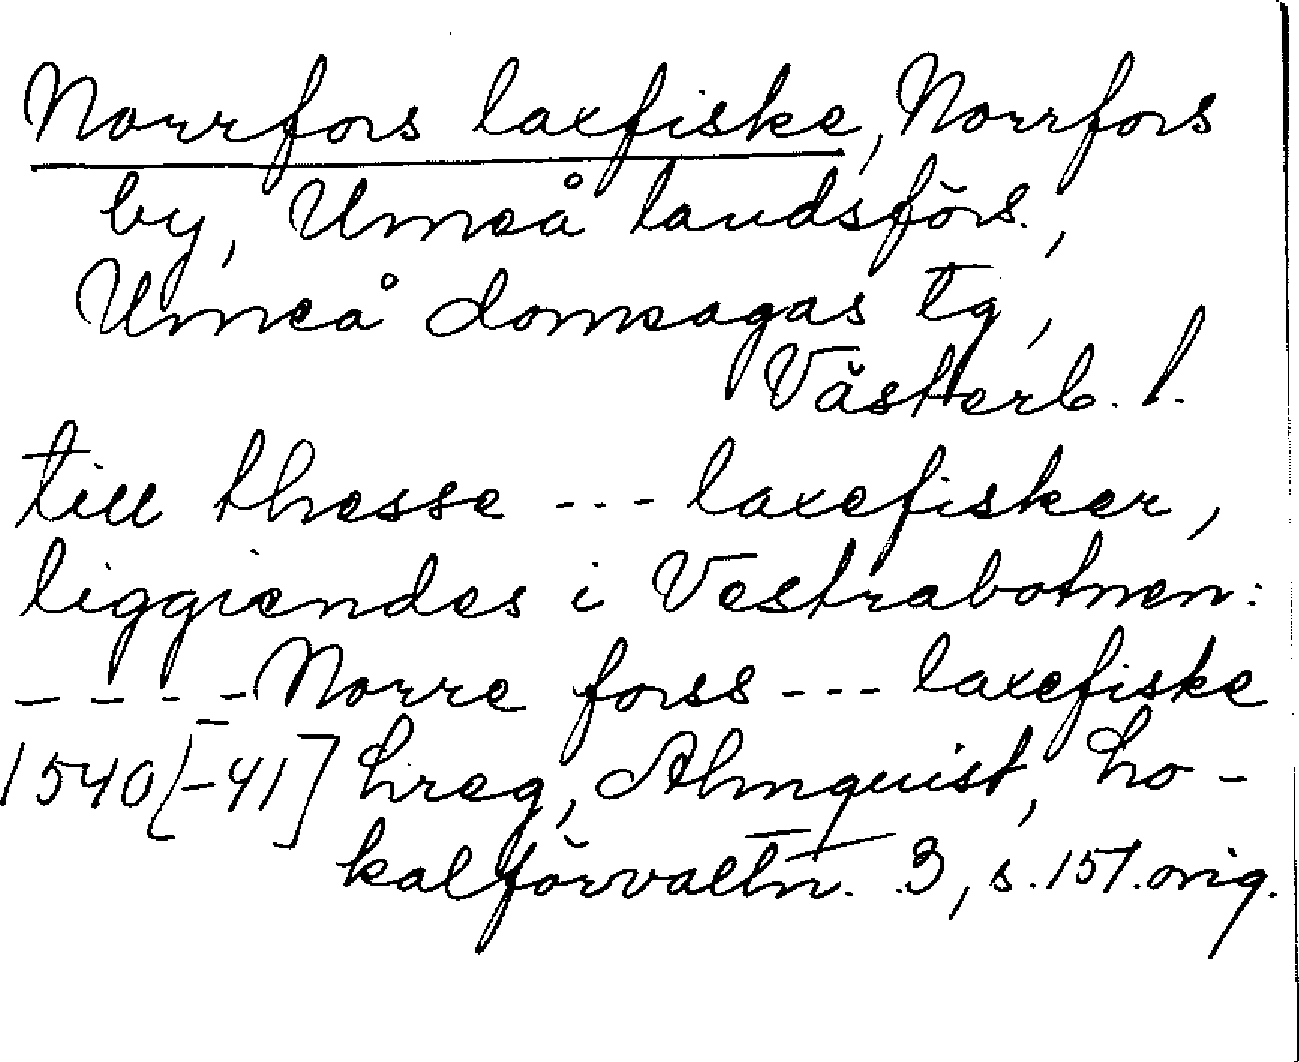 Norrfors laxfiske, Norrfors
by, Umeå landsförs.,
Umeå domsagas tg,
Västerb. l.
till thesse --- laxefisker,
liggiendes i Vestrabotnen:
---- Norre forss --- laxefiske
1540[-41] Lreg, Almquist, Lo-
kalförvaltn. 3, s. 157. orig.